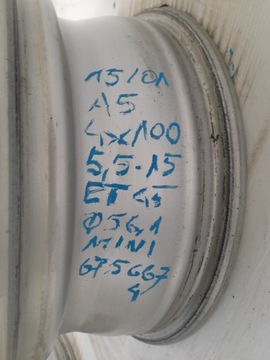 15/01
A5
4x100
5,5-15
ET45
Ø56,1
MINI
675667
4